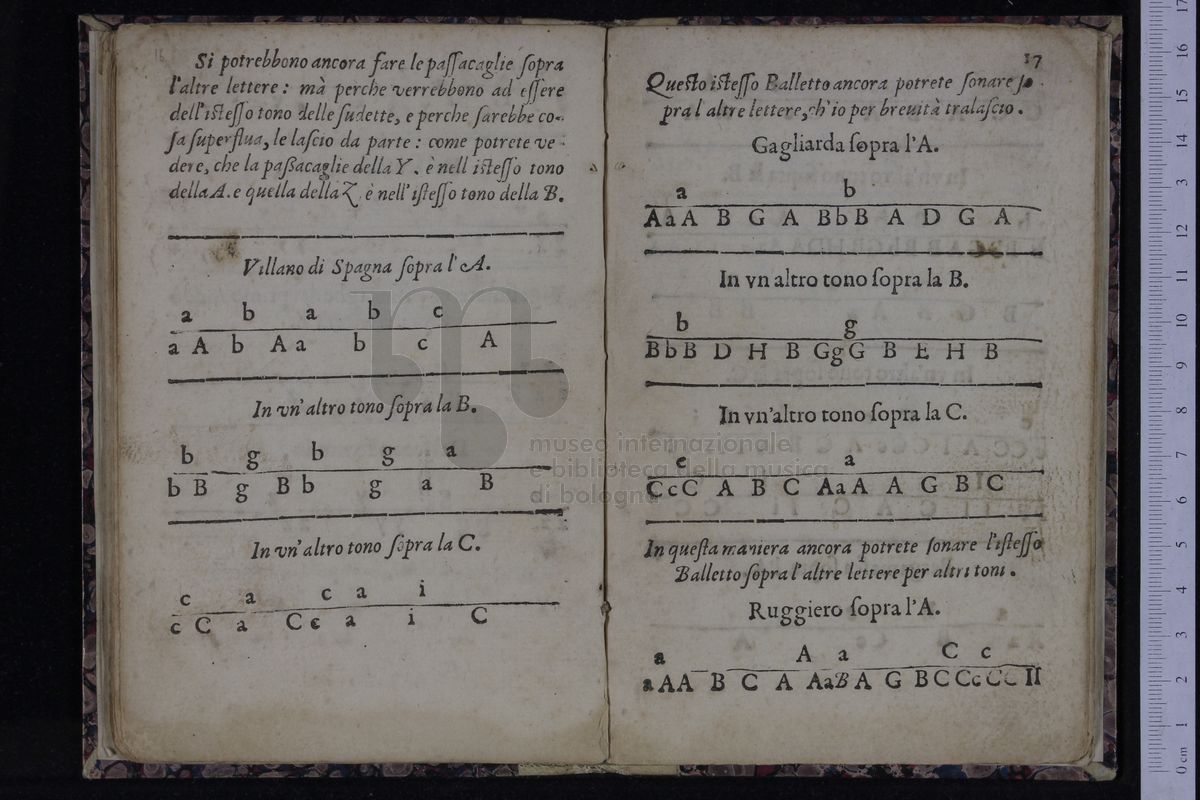 Si potrebbono ancora fare le paſſacaglie ſopra
l'altre lettere: mà perche verrebbono ad eſſere
dell'iſteſſo tono delle ſudette, e perche ſarebbe co-
ſa ſuperflua, le laſcio da parte: come potrete ve-
dere, che la paßacaglie della Y. è nell iſteſſo tono
della A. e quella della Z. è nell' iſteſſo tono della B.
Villano di Spagna ſopra l'A.
a b a b c
a A b A a b c A
In vn' altro tono ſopra la B.
b g b g a
b B g B b g a B
In vn' altro tono ſopra la C.
c a c a i
c C a C c a i C
17
Queſto iſteſſo Balletto ancora potrete ſonare ſo
pra l altre lettere, ch' io per breuità tralaſcio.
Gagliarda ſopra l'A.
a b
A a A B G A B b B A D G A
In vn altro tono ſopra la B.
b g
B b B D H B G g G B E H B
In vn'altro tono ſopra la C.
c a
C c C A B C A a A A G B C
In queſta maniera ancora potrete ſonare l'iſteſſo
Balletto ſopra l'altre lettere per altri toni.
Ruggiero ſopra l'A.
a A a C c
a A A B C A A a B A G B C C c C C I I
museo internazionale
e biblioteca della musica
di bologna
0 cm 1 2 3 4 5 6 7 8 9 10 11 12 13 14 15 16 17